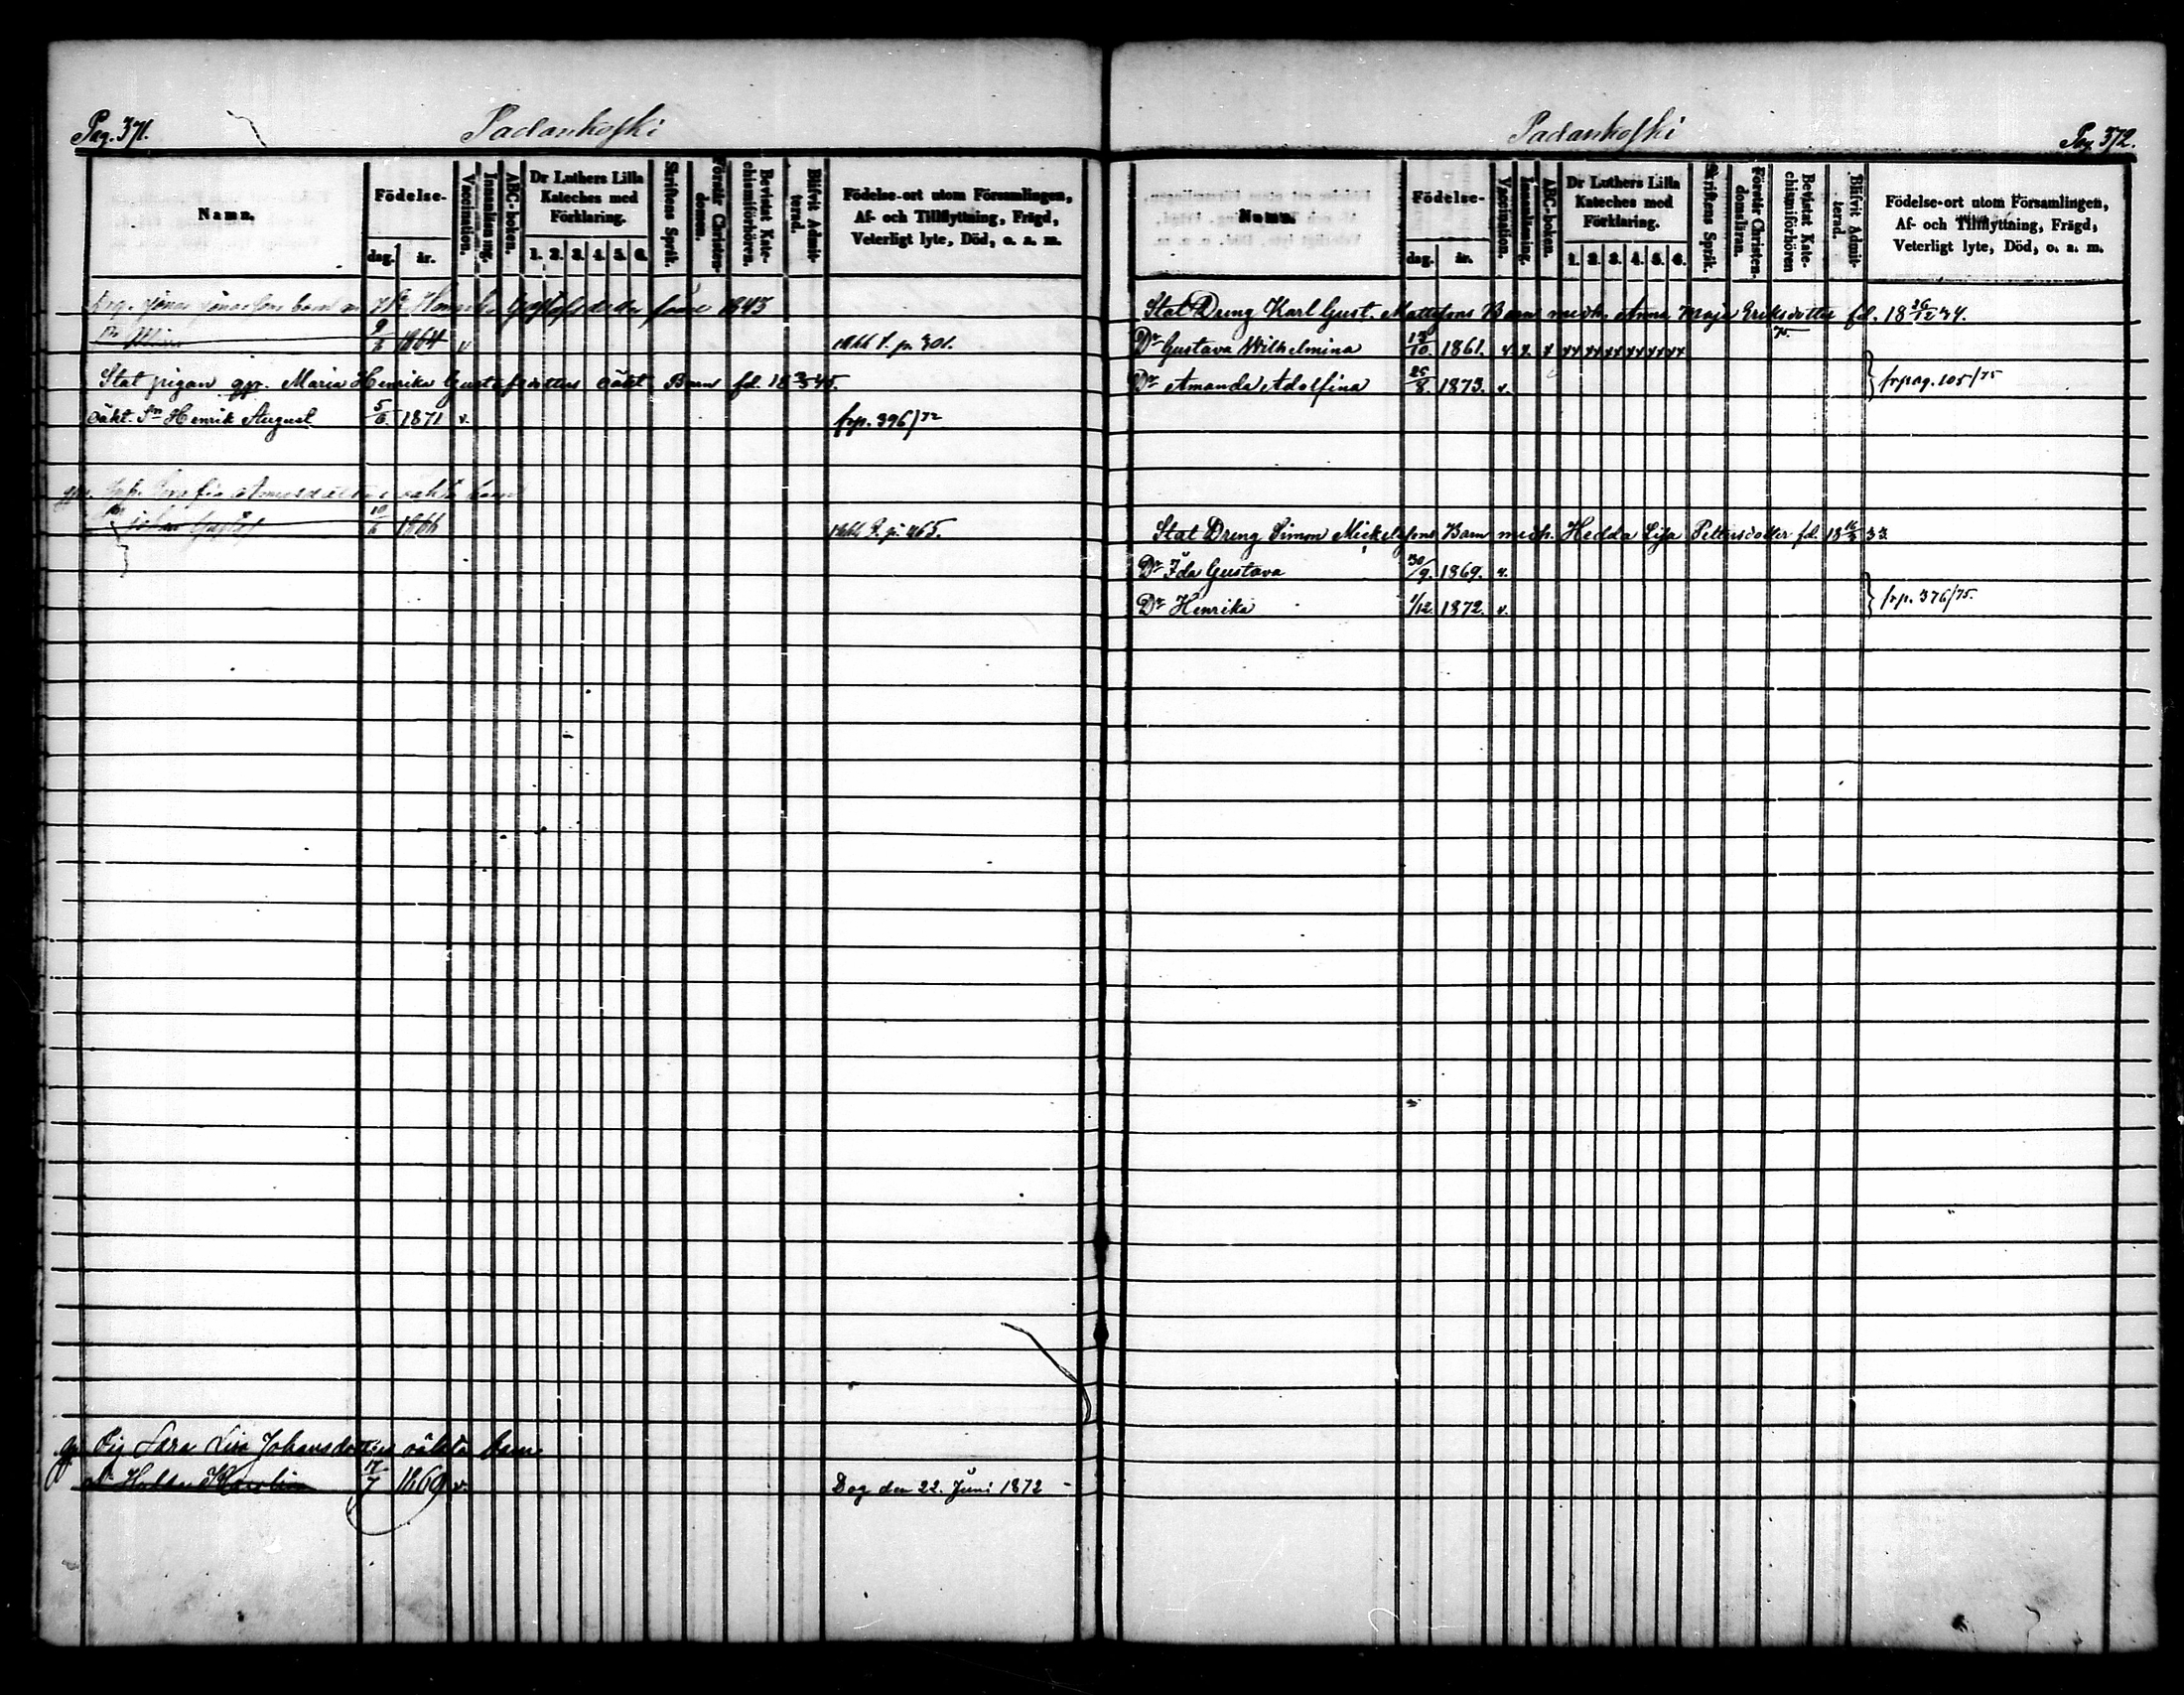 Pag. 371.
Padankoski
Namn.
Födelse-
dag.
år.
Vaccination.
Innanläsning.
ABC-boken.
Dr Luthers Lilla
Kateches med
Förklaring.
1. 2. 3. 4. 5. 6.
Skriftens Språk.
Förstår Christen-
domen.
Bevistat Kate-
chismiförhören.
Blifvit Admit-
terad.
Födelse-ort utom Församlingen,
Af- och Tillflyttning, Frägd,
Veterligt lyte, Död, o. a. m.
1843
9/5 1864 v
Stat pigan gp. Maria Henrika Gustafsdotters oäkt Barn fd. 18 45.
oäkt. Sn Henrik August 5/6. 1871 v. frp. 396/72
10/6 1866
gp. Pig Sara Lisa Johansdotters oäkta barn
Dr Hulda Karolina 17/7 1869 v. Dog den 22. Juni 1872
Padankoski
Pag. 372.
Namn.
Födelse-
dag.
år.
Vaccination.
Innanläsning.
ABC-boken.
Dr Luthers Lilla
Kateches med
Förklaring.
1. 2. 3. 4. 5. 6.
Skriftens Språk.
Förstår Christen-
domsläran.
Bevistat Kate-
chismiförhören
Blifvit Admit-
terad.
Födelse-ort utom Församlingen,
Af- och Tillflyttning, Frägd,
Veterligt lyte, Död, o. a. m.
Stat Dreng Karl Gust. Mattssons Barn med h. Anna Maja Eriksdotter fd. 18 26/12 34.
75.
Dr Gustava Wilhelmina 1861. v. v. v vv vv vv vv vv vv
Dr Amanda Adolfina 25/8. 1873. v. frpag. 105/75
Stat Dreng Simon Mickelssons Barn med h. Hedda Lisa Pettersdotter fd. 18 33
Dr Ida Gustava 30/9. 1869. v.
Dr Henrika 1/12 1872. v. frp. 376/75.